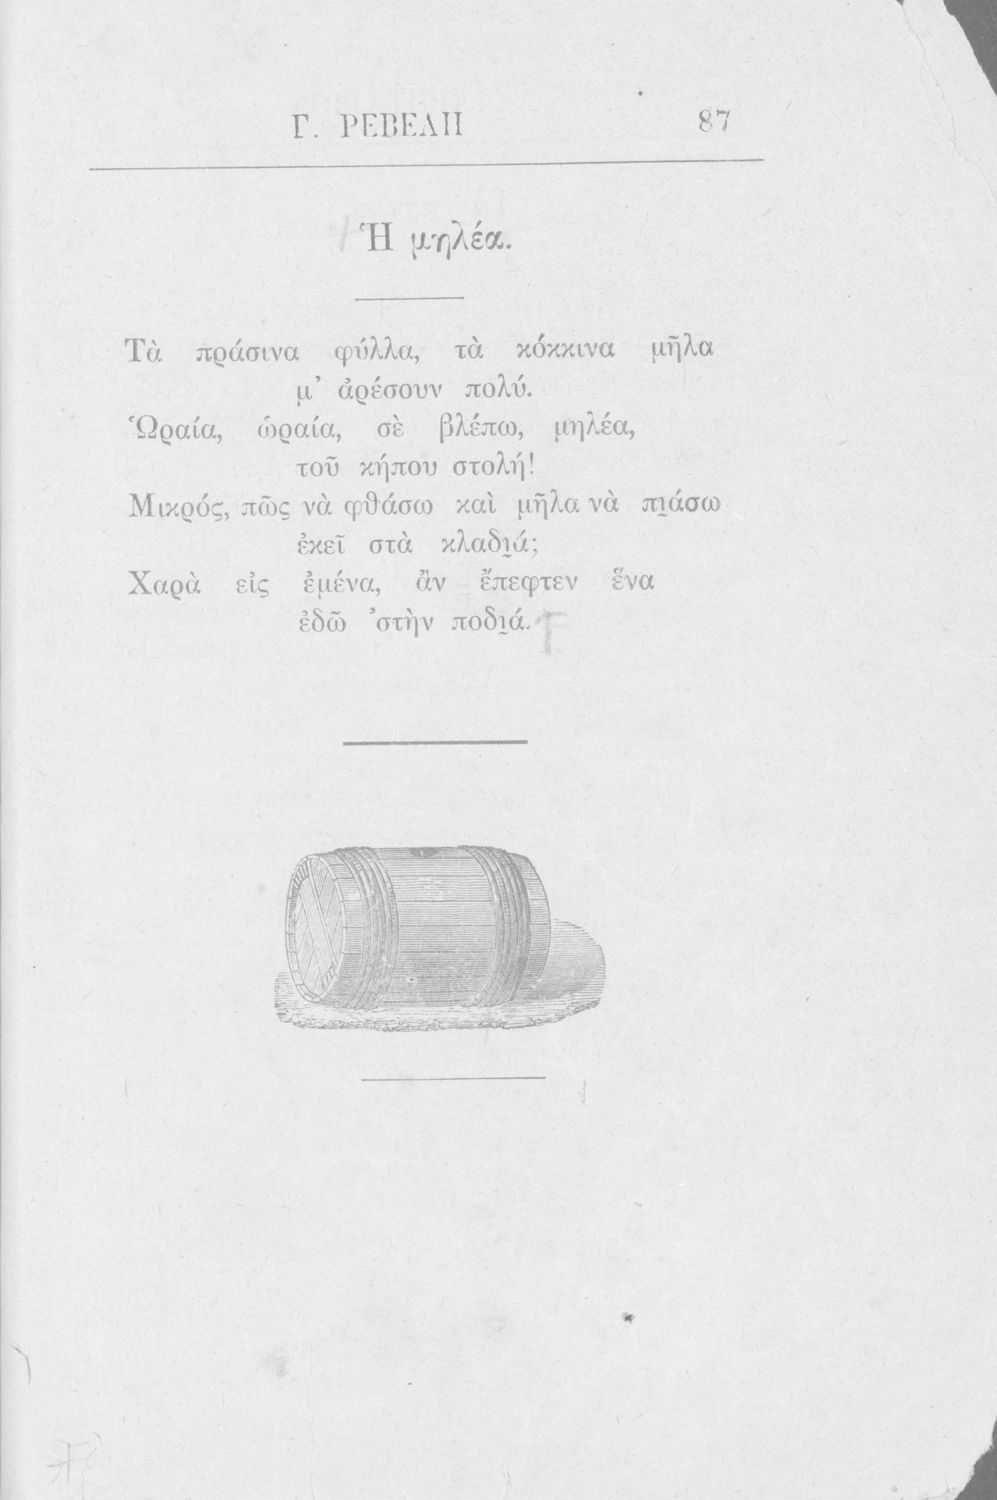 Γ. ΡΕΒΕΛΗ 87
Ἡ μηλέα.
Τὰ πράσινα φύλλα, τὰ κόκκινα μῆλα
μ᾿ ἀρέσουν πολύ.
Ὡραία, ὡραία, σὲ βλέπω, μηλέα,
τοῦ κήπου στολή!
Μικρός, πῶς νὰ φθάσω καὶ μῆλα νὰ πι̯άσω
ἐκεῖ στὰ κλαδι̯ά;
Χαρὰ εἰς ἐμένα, ἂν ἔπεφτεν ἕνα
ἐδῶ ᾿στὴν ποδι̯ά.